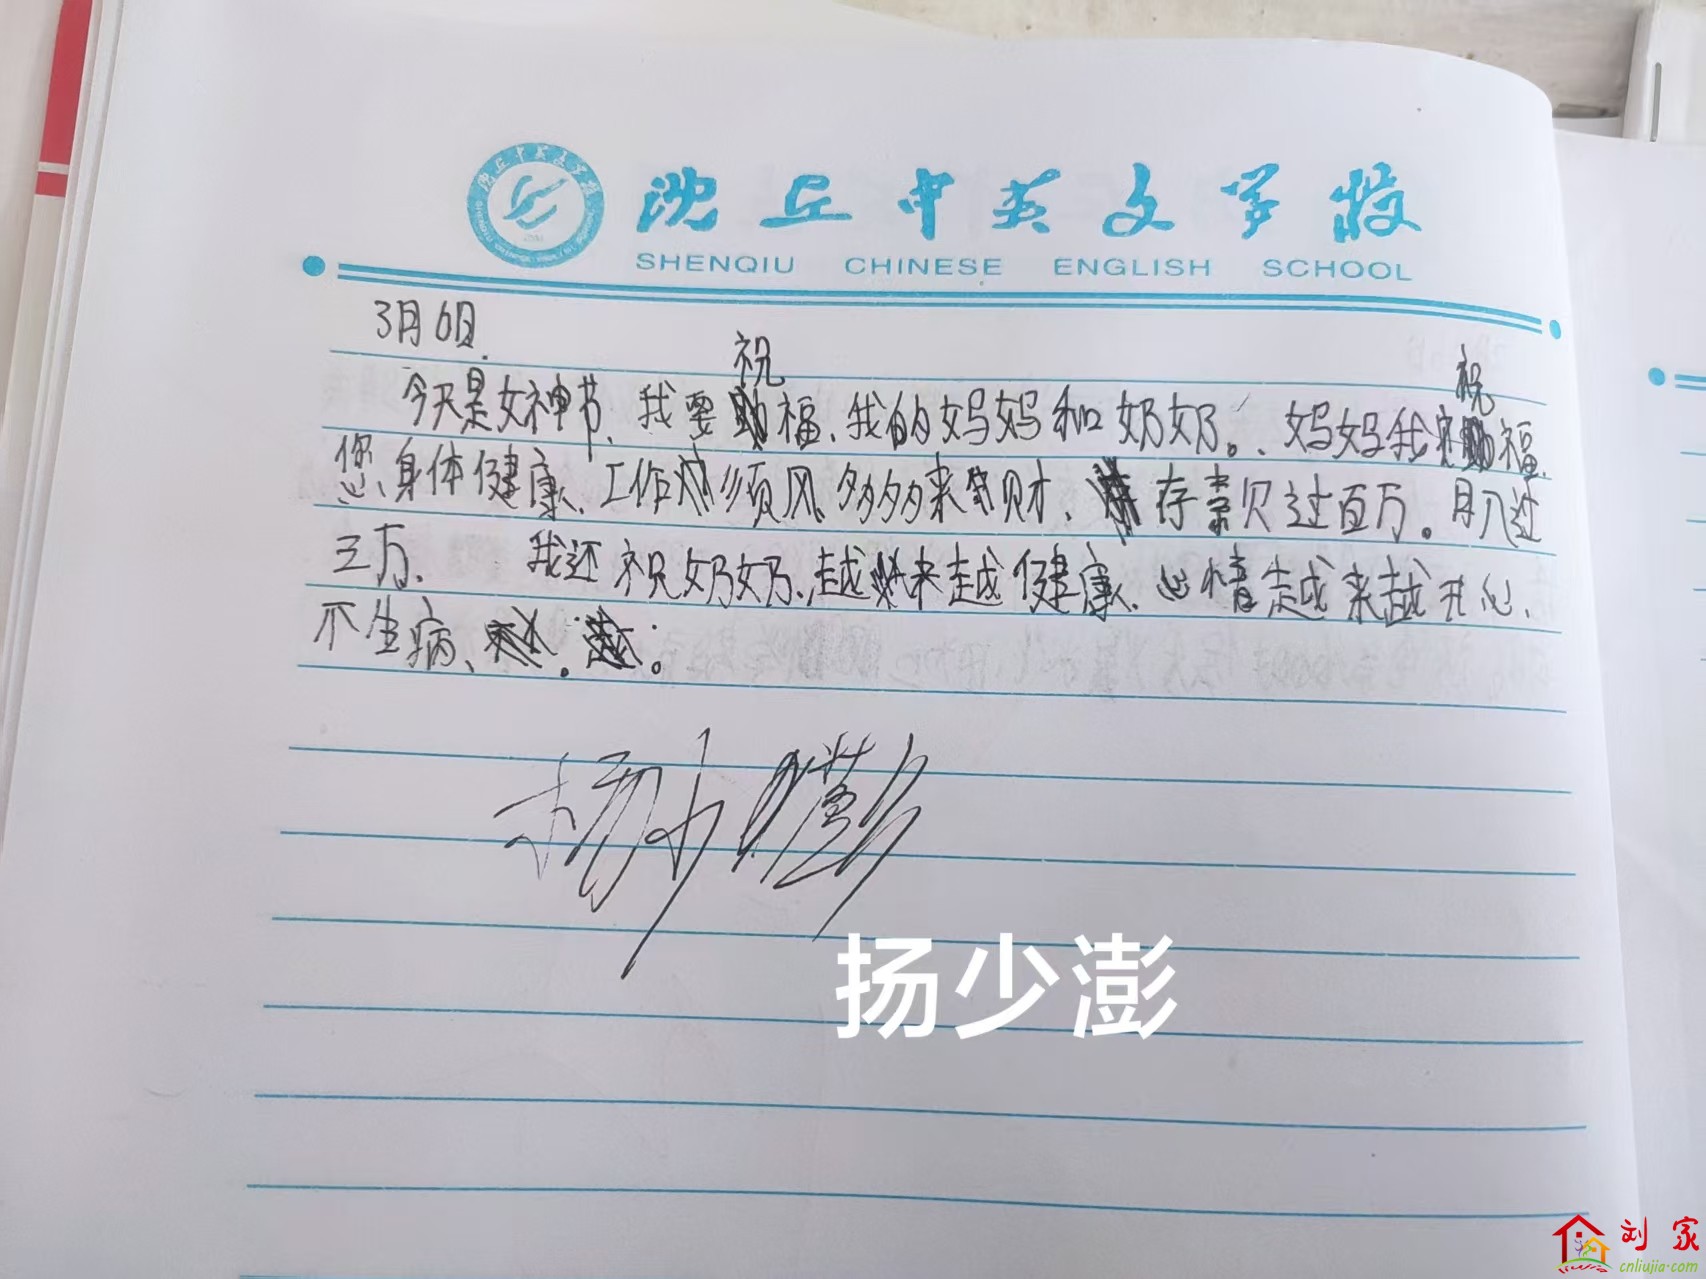 沈丘中英文学校
SHENQIU CHINESE ENGLISH SCHOOL
3月6日
今天是女神节、我要祝福、我的妈妈和奶奶。、妈妈我祝福、
您、身体健康、工作顺风、多多来财、存款过百万。月入过
三万、我还祝奶奶、越来越健康、心情越来越开心、
不生病、
杨少澎
扬少澎
刘家
cnliujia.com